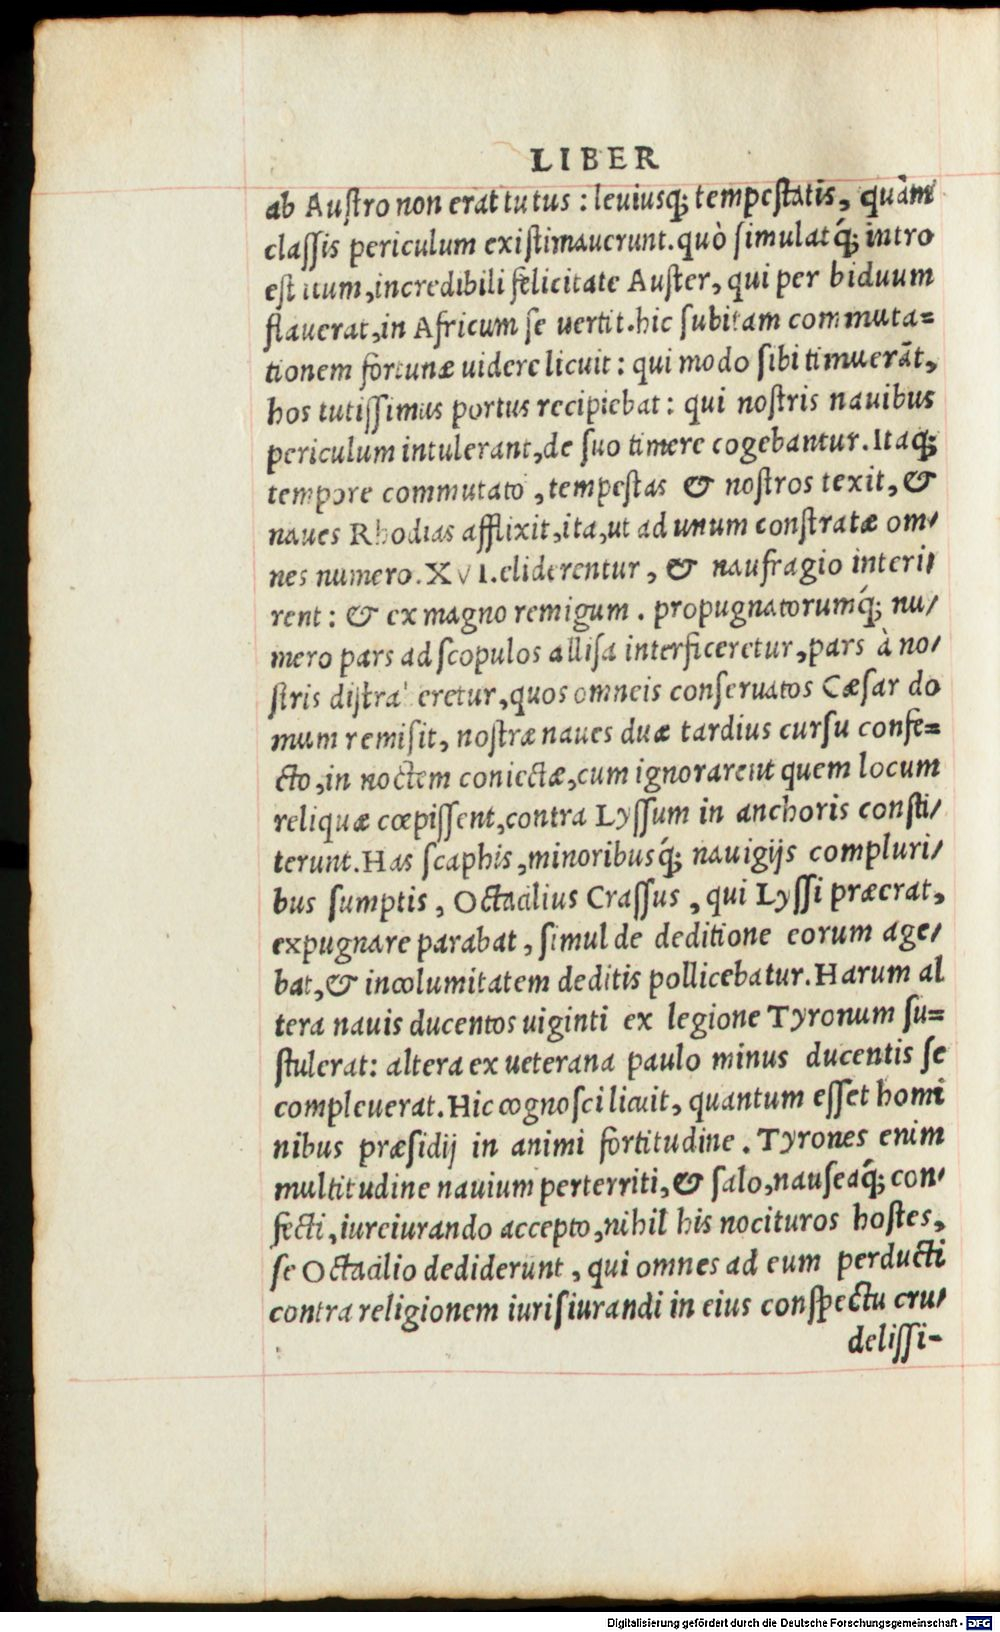 LIBER
ab Auſtro non erat tutus : leuiusq; tempeſtatis, quàm
claſſis periculum exiſtimauerunt. quò ſimulatq́; intro
eſt itum, incredibili felicitate Auſter, qui per biduum
flauerat, in Africum ſe uertit. hic ſubitam commuta=
tionem fortunæ uidere licuit : qui modo ſibi timuerāt,
hos tutiſſimus portus recipiebat : qui noſtris nauibus
periculum intulerant, de ſuo timere cogebantur. Itaq;
tempore commutato, tempeſtas & noſtros texit, &
naues Rhodias afflixit, ita, ut ad unum conſtratæ om/
nes numero. XVI. eliderentur, & naufragio interi/
rent : & ex magno remigum . propugnatorumq́; nu/
mero pars ad ſcopulos alliſa interficeretur, pars à no/
ſtris diſtraheretur, quos omneis conſeruatos Cæſar do
mum remiſit, noſtræ naues duæ tardius curſu confe=
cto, in noctem coniectæ, cum ignorarent quem locum
reliquæ cœpiſſent, contra Lyſſum in anchoris conſti/
terunt. Has ſcaphis, minoribusq́; nauigijs compluri/
bus ſumptis, Octacilius Craſſus, qui Lyſſi præerat,
expugnare parabat, ſimul de deditione eorum age/
bat, & incolumitatem deditis pollicebatur. Harum al
tera nauis ducentos uiginti ex legione Tyronum ſu=
ſtulerat: altera ex ueterana paulo minus ducentis ſe
compleuerat. Hic cognoſci licuit, quantum eſſet homi
nibus præſidij in animi fortitudine. Tyrones enim
multitudine nauium perterriti, & ſalo, nauſeaq́; con/
fecti, iureiurando accepto, nihil his nocituros hoſtes,
ſe Octacilio dediderunt, qui omnes ad eum perducti
contra religionem iuriſiurandi in eius conſpectu cru/
deliſſi-
Digitalisierung gefördert durch die Deutsche Forschungsgemeinschaft - DFG